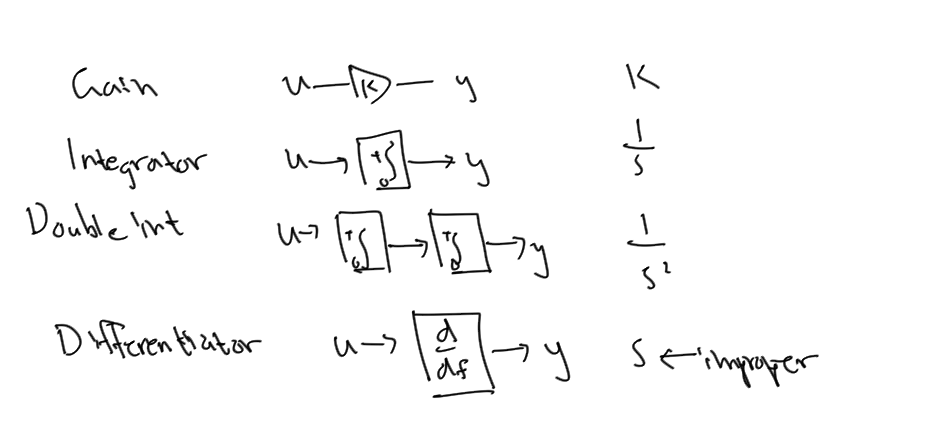 Gain u K y K
Integrator u → ∫₀ᵗ → y 1/s
Double int u → ∫₀ᵗ → ∫₀ᵗ → y 1/s²
Differentiator u → d/dt → y s ← improper